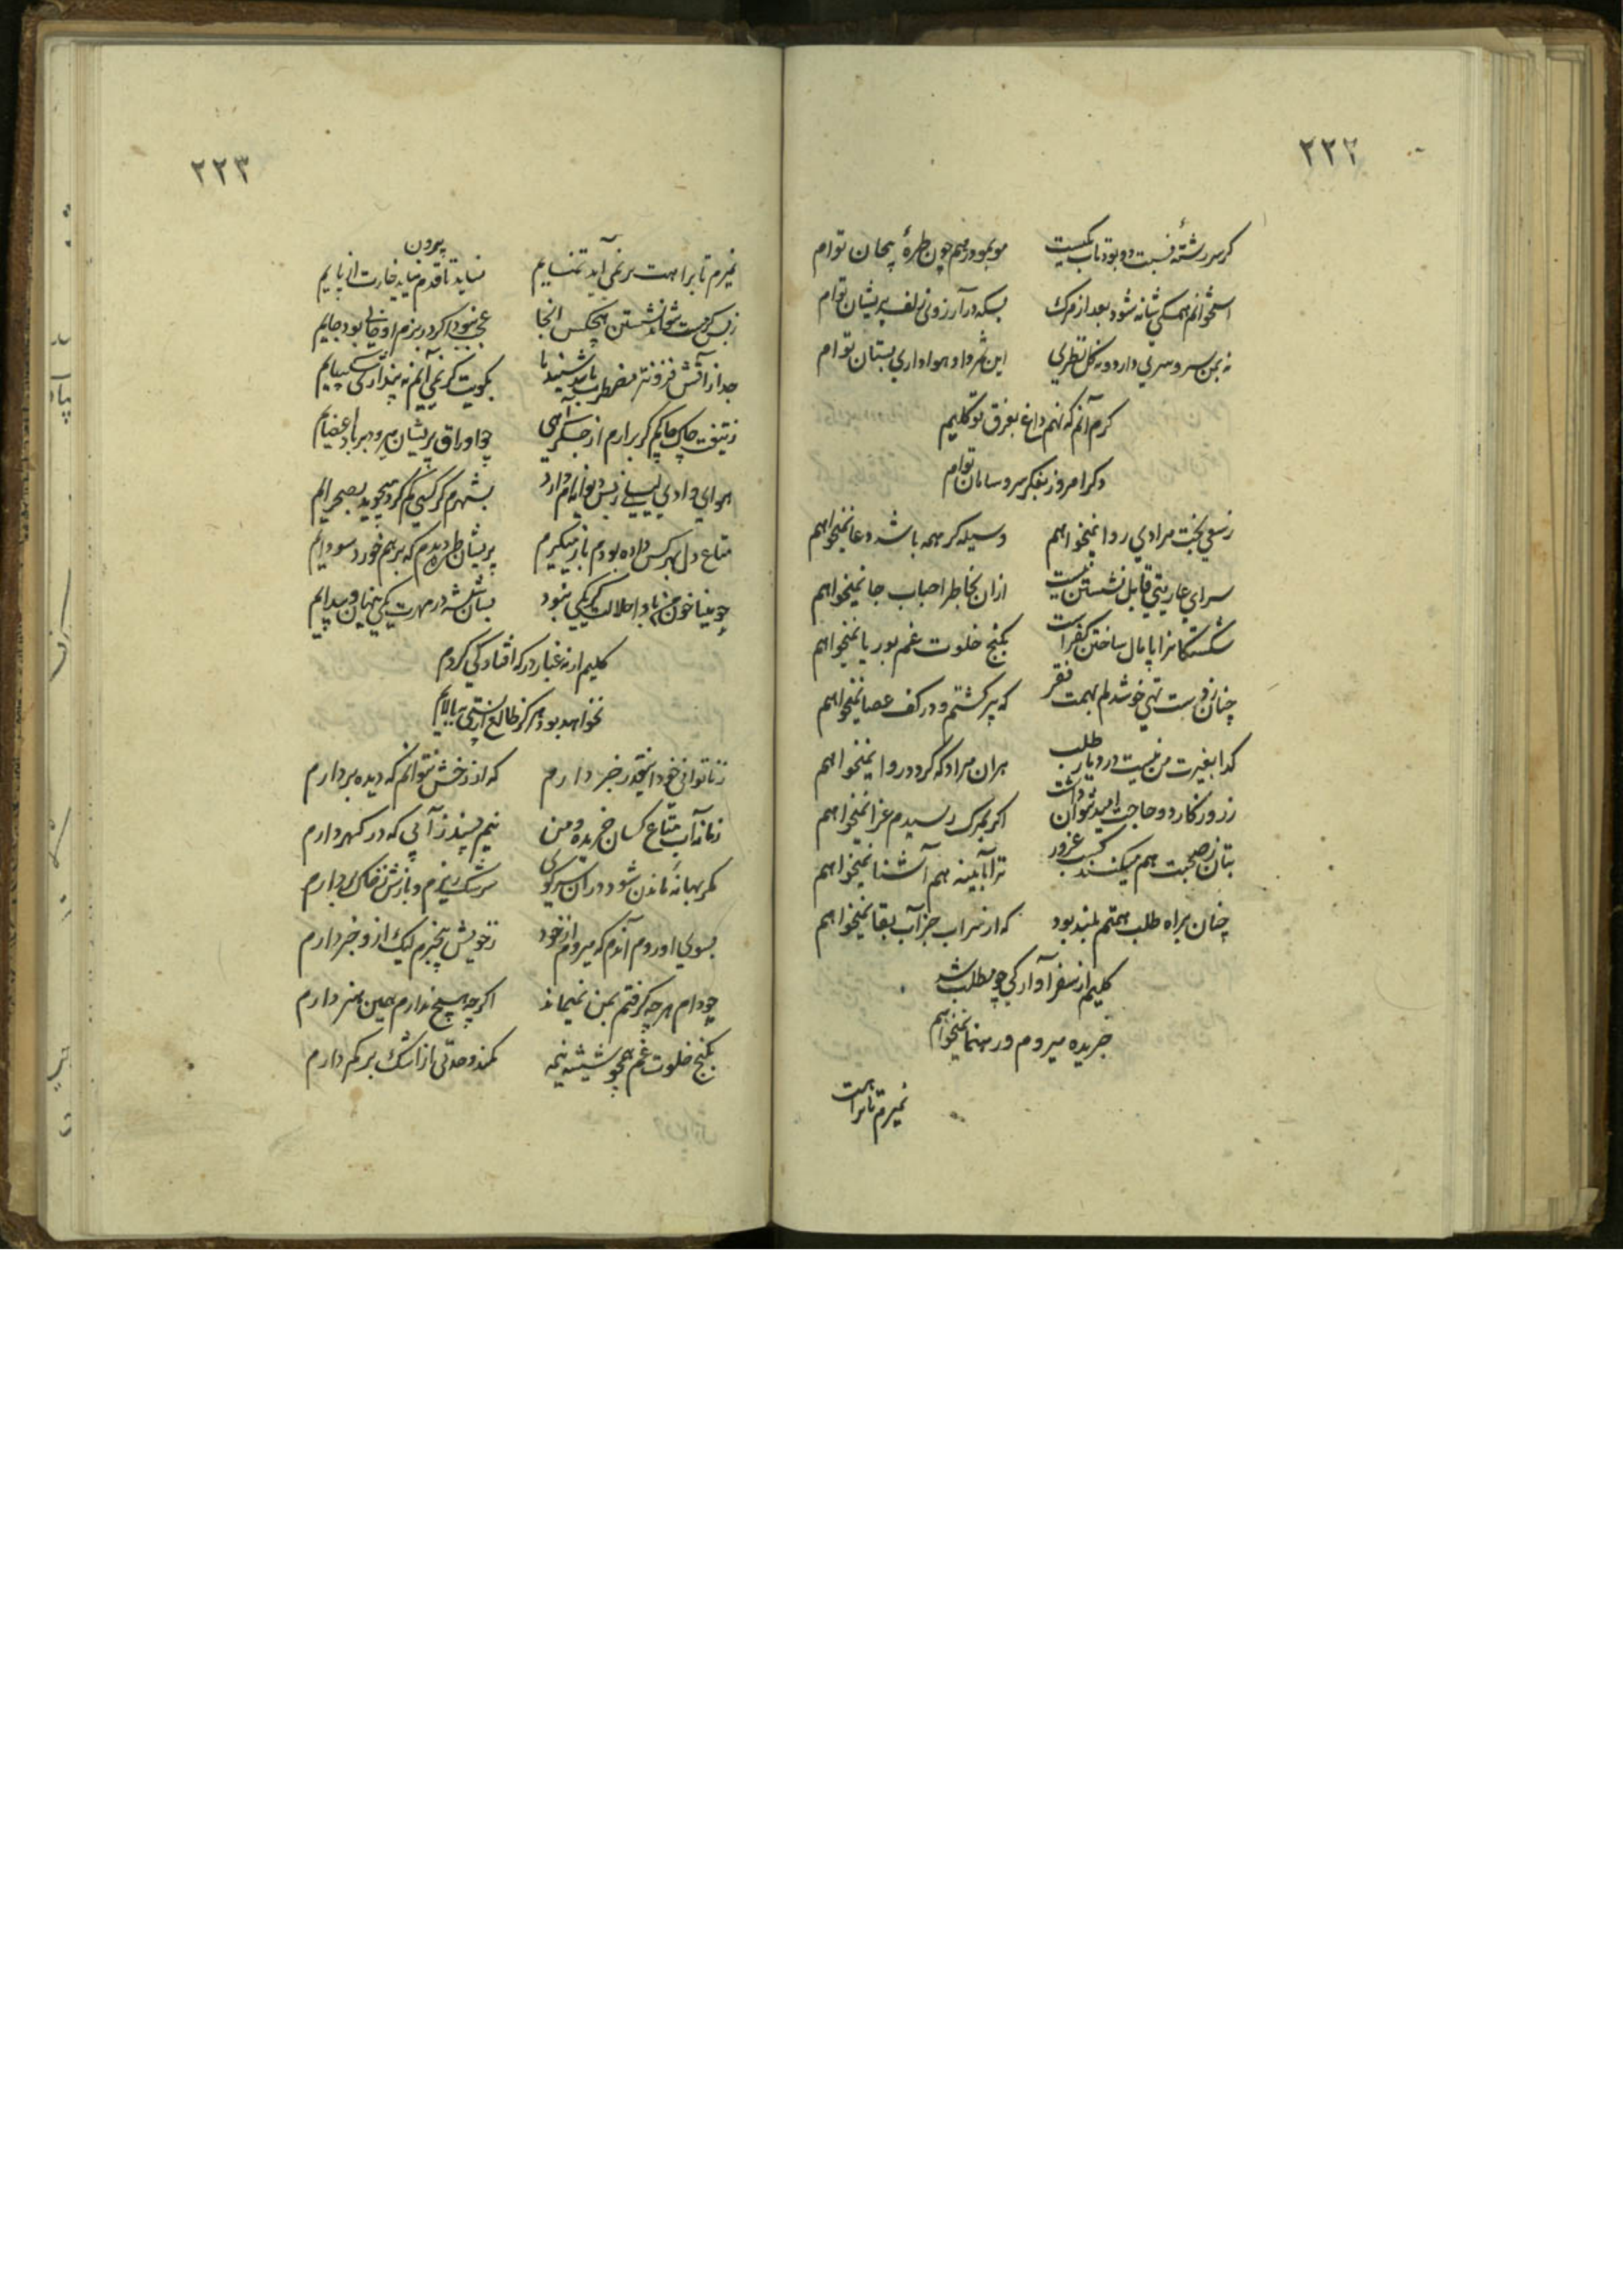 ۲۲۲
کرسر رشتهٔ نسبت دو بود تاب یکیست مو بمو درهم چون طرهٔ پیچان توام
استخوانم همکی شانه شود بعد از مرک بسکه در آرزوی زلف پریشان توام
نه بمن سرو سری دارد و نه کل نظری این ثمر داد هواداری بستان توام
کرم آنم که نهم داغ بفرق تو کلیم
دکر امروز بفکر سر و سامان توام
ز سعی بخت مرادی روا نمیخواهم وسیله کر همه باشد دعا نمیخواهم
سرای عاریتی قابل نشستن نیست ازان بخاطر احباب جا نمیخواهم
شکستکانرا پامال ساختن کفر است بکنج خلوت غم بوریا نمیخواهم
چنان ز دست تهی خوشدلم بهمت فقر که پیر کشتم و در کف عصا نمیخواهم
کدا بغیرت من نیست در دیار طلب هران مراد که کردد روا نمیخواهم
ز روزکار دو حاجت امید نتوان داشت اکر بمرک رسیدم عزا نمیخواهم
بتان ز صحبت هم میکنند کسب غرور ترا بآیینه هم آشنا نمیخواهم
چنان براه طلب همتم بلند بود که از سراب جز آب بقا نمیخواهم
کلیم از سفر آوارکی چو مطلب شد
جریده میروم و رهنما نمیخواهم
نمیرم تا براهت
۲۲۳
نمیرم تا براهت بر نمی آید تمنایم نیاید تا قدم نیاید خارت از پایم بیرون
ز بس کرمت نتواند نشستن هیچکس آنجا عجب نبود اکر در بزم او خالی بود جایم
جدا از آتش فزونتر مضطرب باشد بکویت کر نمی آیم نه پنداری شکیبایم
ز تیغت چاک چاکم کر برارم از جکر آهی چو اوراق پریشان میرود بر باد اعضایم
هوای وادی لیلی دارد بشهرم کر کسی کم کرد میجوید بصحرایم
متاع دل بهر کس داده بودم باز میکیرم پریشان طره دیدم که بر هم خورد سودایم
چو مینا خون من بادا حلالت کر یکی نبود بسان شیشه در مهرت یکی پنهان و پیدایم
کلیم از نه غبار درکه افتادکی کردم
نخواهد بود هرکز طالع از پستی ببالایم
ز ناتوانی خود اینقدر خبر دارم که از رخش نتوانم که دیده بردارم
زمانه آب متاع کسان خریده و من نیم سپند ز آبی که در کهر دارم
مکر بهانهٔ ماندن شود دران سر کوی سرشک ریزم و بازش ز خاک بردارم
بسوی او روم آندم که میروم از خود ز خویش بیخبرم لیک ازو خبر دارم
چو دام هر چه کرفتم بمن نمیماند اکر چه هیچ ندارم همین هنر دارم
بکنج خلوت غم همچو شیشه نیمه کمند وحدتی از اشک بر کمر دارم